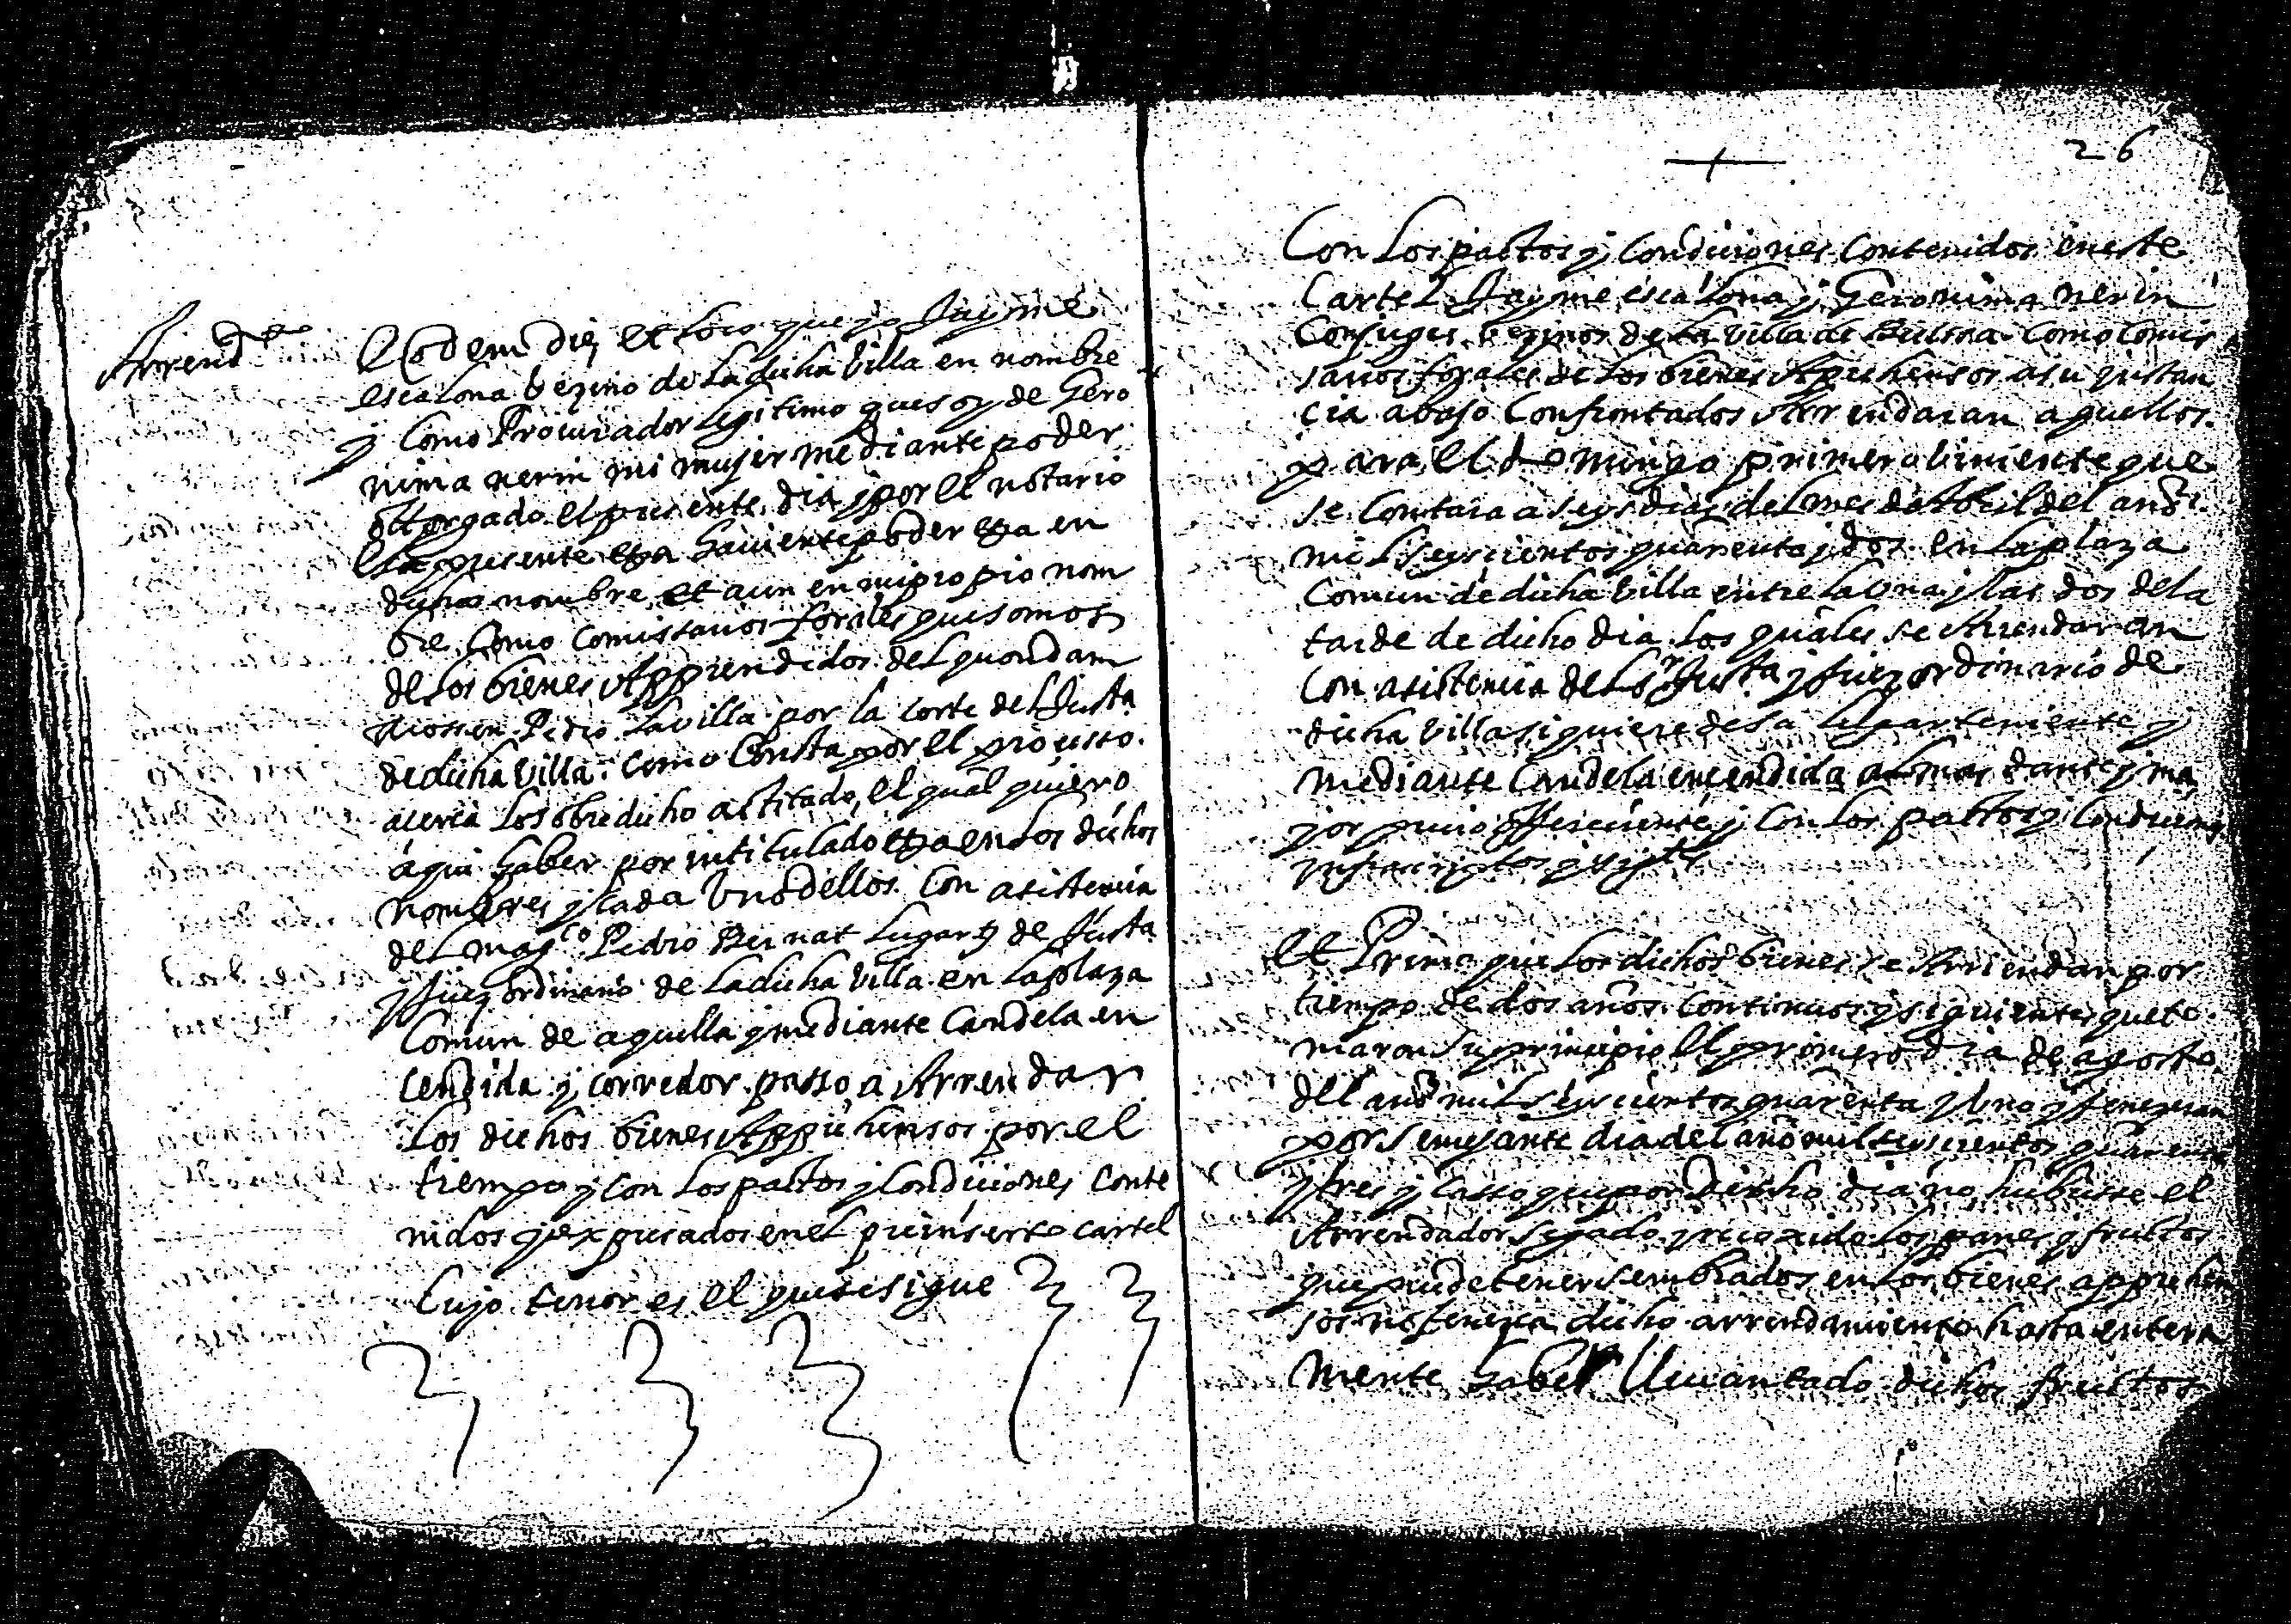 Arrend.to
Eodem die et loco que yo Jayme
escalona vezino de la dicha villa en nombre
y como Procurador legitimo que soy de Gero
nima nerin mi mujer mediante poder
ottorgado el presente dia y por el notario
la presente haviente poder en
dicho nombre et aun en mi propio nom
bre como comissarios forales que somos
de los bienes Apprendidos del quondam
Mossen Pedro Lavilla por la corte del Justa
de dicha villa como consta por el processo
acerca lo sobredicho actitado, el qual quiero
aqui haber por intitulado en los dichos
nombres y cada uno dellos con asistencia
del mag.co Pedro Bernat Lugart de Justa
y Juez ordinario de la dicha villa en la plaza
Comun de aquella y mediante Candela en
cendida y corredor passo a Arrendar
los dichos bienes Apprehensos por el
tiempo y con los pactos y condiciones conte
nidos y expresados en el preinserto cartel
Cujo tenor es el que se sigue
26
Con los pactos y condiciones contenidos en este
Cartel Jayme escalona y Geronima nerin
Conjuges vezinos de la villa de Como comis
sarios forales de los bienes Aprehensos a su instan
cia abajo Confrontados Arrendaran aquellos
para el domingo primero viniente que
se contara a seys dias del mes de Abril del año
mil seyscientos quarenta y dos en la plaza
Comun de dicha villa entre la una y las dos de la
tarde de dicho dia los quales se Arrendaran
con asistencia del Sr Justa y Juez ordinario de
dicha villa siquiere de su lugarteniente y
mediante Candela encendida al mas dante y ma
yor precio offreciente y con los pactos y
infrascriptos y
Et Primo que los dichos bienes se Arriendan por
tiempo de dos años continuos y siguientes que to
maron su principio el primero dia de agosto
del año mil seyscientos quarenta y uno y feneceran
por semejante dia del año mil seyscientos quarenta
y tres y casso que por dicho dia no hubiesse el
Arrendador segado y recogido los panes y fructos
que puede tener sembrados en los bienes apprehen
sos no fenezca dicho arrendamiento hasta entera
mente haber llevantado dichos fructos